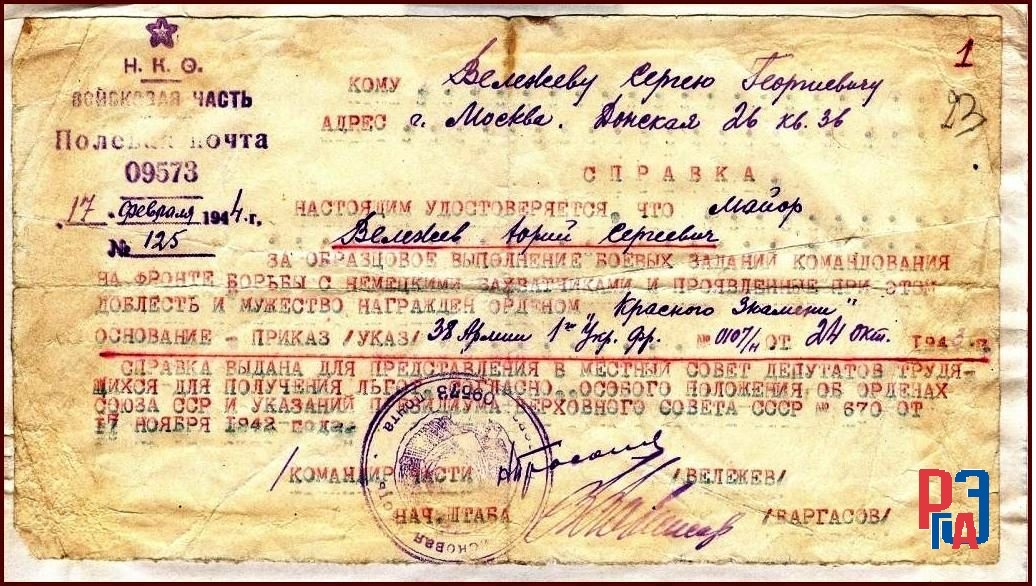 Н. К. О.
ВОЙСКОВАЯ ЧАСТЬ
Полевая почта
09573
17 февраля 1944 г.
№ 125
1
23
КОМУ Вележеву Сергею Георгиевичу
АДРЕС г. Москва. Донская 26 кв. 36
СПРАВКА.
НАСТОЯЩИМ УДОСТОВЕРЯЕТСЯ, ЧТО Майор
Вележев Юрий Сергеевич
ЗА ОБРАЗЦОВОЕ ВЫПОЛНЕНИЕ БОЕВЫХ ЗАДАНИЙ КОМАНДОВАНИЯ
НА ФРОНТЕ БОРЬБЫ С НЕМЕЦКИМИ ЗАХВАТЧИКАМИ И ПРОЯВЛЕННЫЕ ПРИ ЭТОМ
ДОБЛЕСТЬ И МУЖЕСТВО НАГРАЖДЕН ОРДЕНОМ "Красного Знамени"
ОСНОВАНИЕ - ПРИКАЗ /УКАЗ/ 38 Армии 1го Укр. Фр. № 0107/н ОТ 24 окт. 1943 г.
СПРАВКА ВЫДАНА ДЛЯ ПРЕДСТАВЛЕНИЯ В МЕСТНЫЙ СОВЕТ ДЕПУТАТОВ ТРУДЯ-
ЩИХСЯ ДЛЯ ПОЛУЧЕНИЯ ЛЬГОТ, СОГЛАСНО, ОСОБОГО ПОЛОЖЕНИЯ ОБ ОРДЕНАХ
СОЮЗА ССР И УКАЗАНИЙ ПРЕЗИДИУМА ВЕРХОВНОГО СОВЕТА СССР № 670 ОТ
17 НОЯБРЯ 1942 года.
КОМАНДИР ЧАСТИ /ВЕЛЕЖЕВ/
НАЧ. ШТАБА /ВАРГАСОВ/
09573
почта
РГАЭ